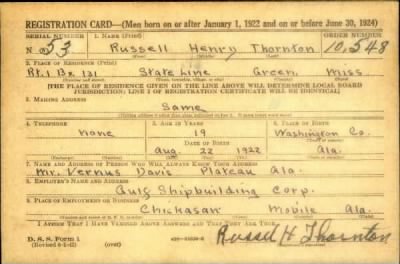 REGISTRATION CARD—(Men born on or after January 1, 1922 and on or before June 30, 1924)
SERIAL NUMBER 1. NAME (Print) ORDER NUMBER
N 53 Russell Henry Thornton 10,548
(First) (Middle) (Last)
2. PLACE OF RESIDENCE (Print)
Rt. 1 Bx. 131 State Line Green Miss.
[THE PLACE OF RESIDENCE GIVEN ON THE LINE ABOVE WILL DETERMINE LOCAL BOARD
JURISDICTION; LINE 2 OF REGISTRATION CERTIFICATE WILL BE IDENTICAL]
3. MAILING ADDRESS
Same
4. TELEPHONE 5. AGE IN YEARS 6. PLACE OF BIRTH
None 19 Washington Co.
DATE OF BIRTH
Aug. 22 1922 Ala.
7. NAME AND ADDRESS OF PERSON WHO WILL ALWAYS KNOW YOUR ADDRESS
Mr. Vernus Davis Plateau Ala.
8. EMPLOYER'S NAME AND ADDRESS
Gulf Shipbuilding Corp.
9. PLACE OF EMPLOYMENT OR BUSINESS
Chickasaw Mobile Ala.
I AFFIRM THAT I HAVE VERIFIED ABOVE ANSWERS AND THAT THEY ARE TRUE.
D. S. S. Form 1 (over)
Russell H Thornton